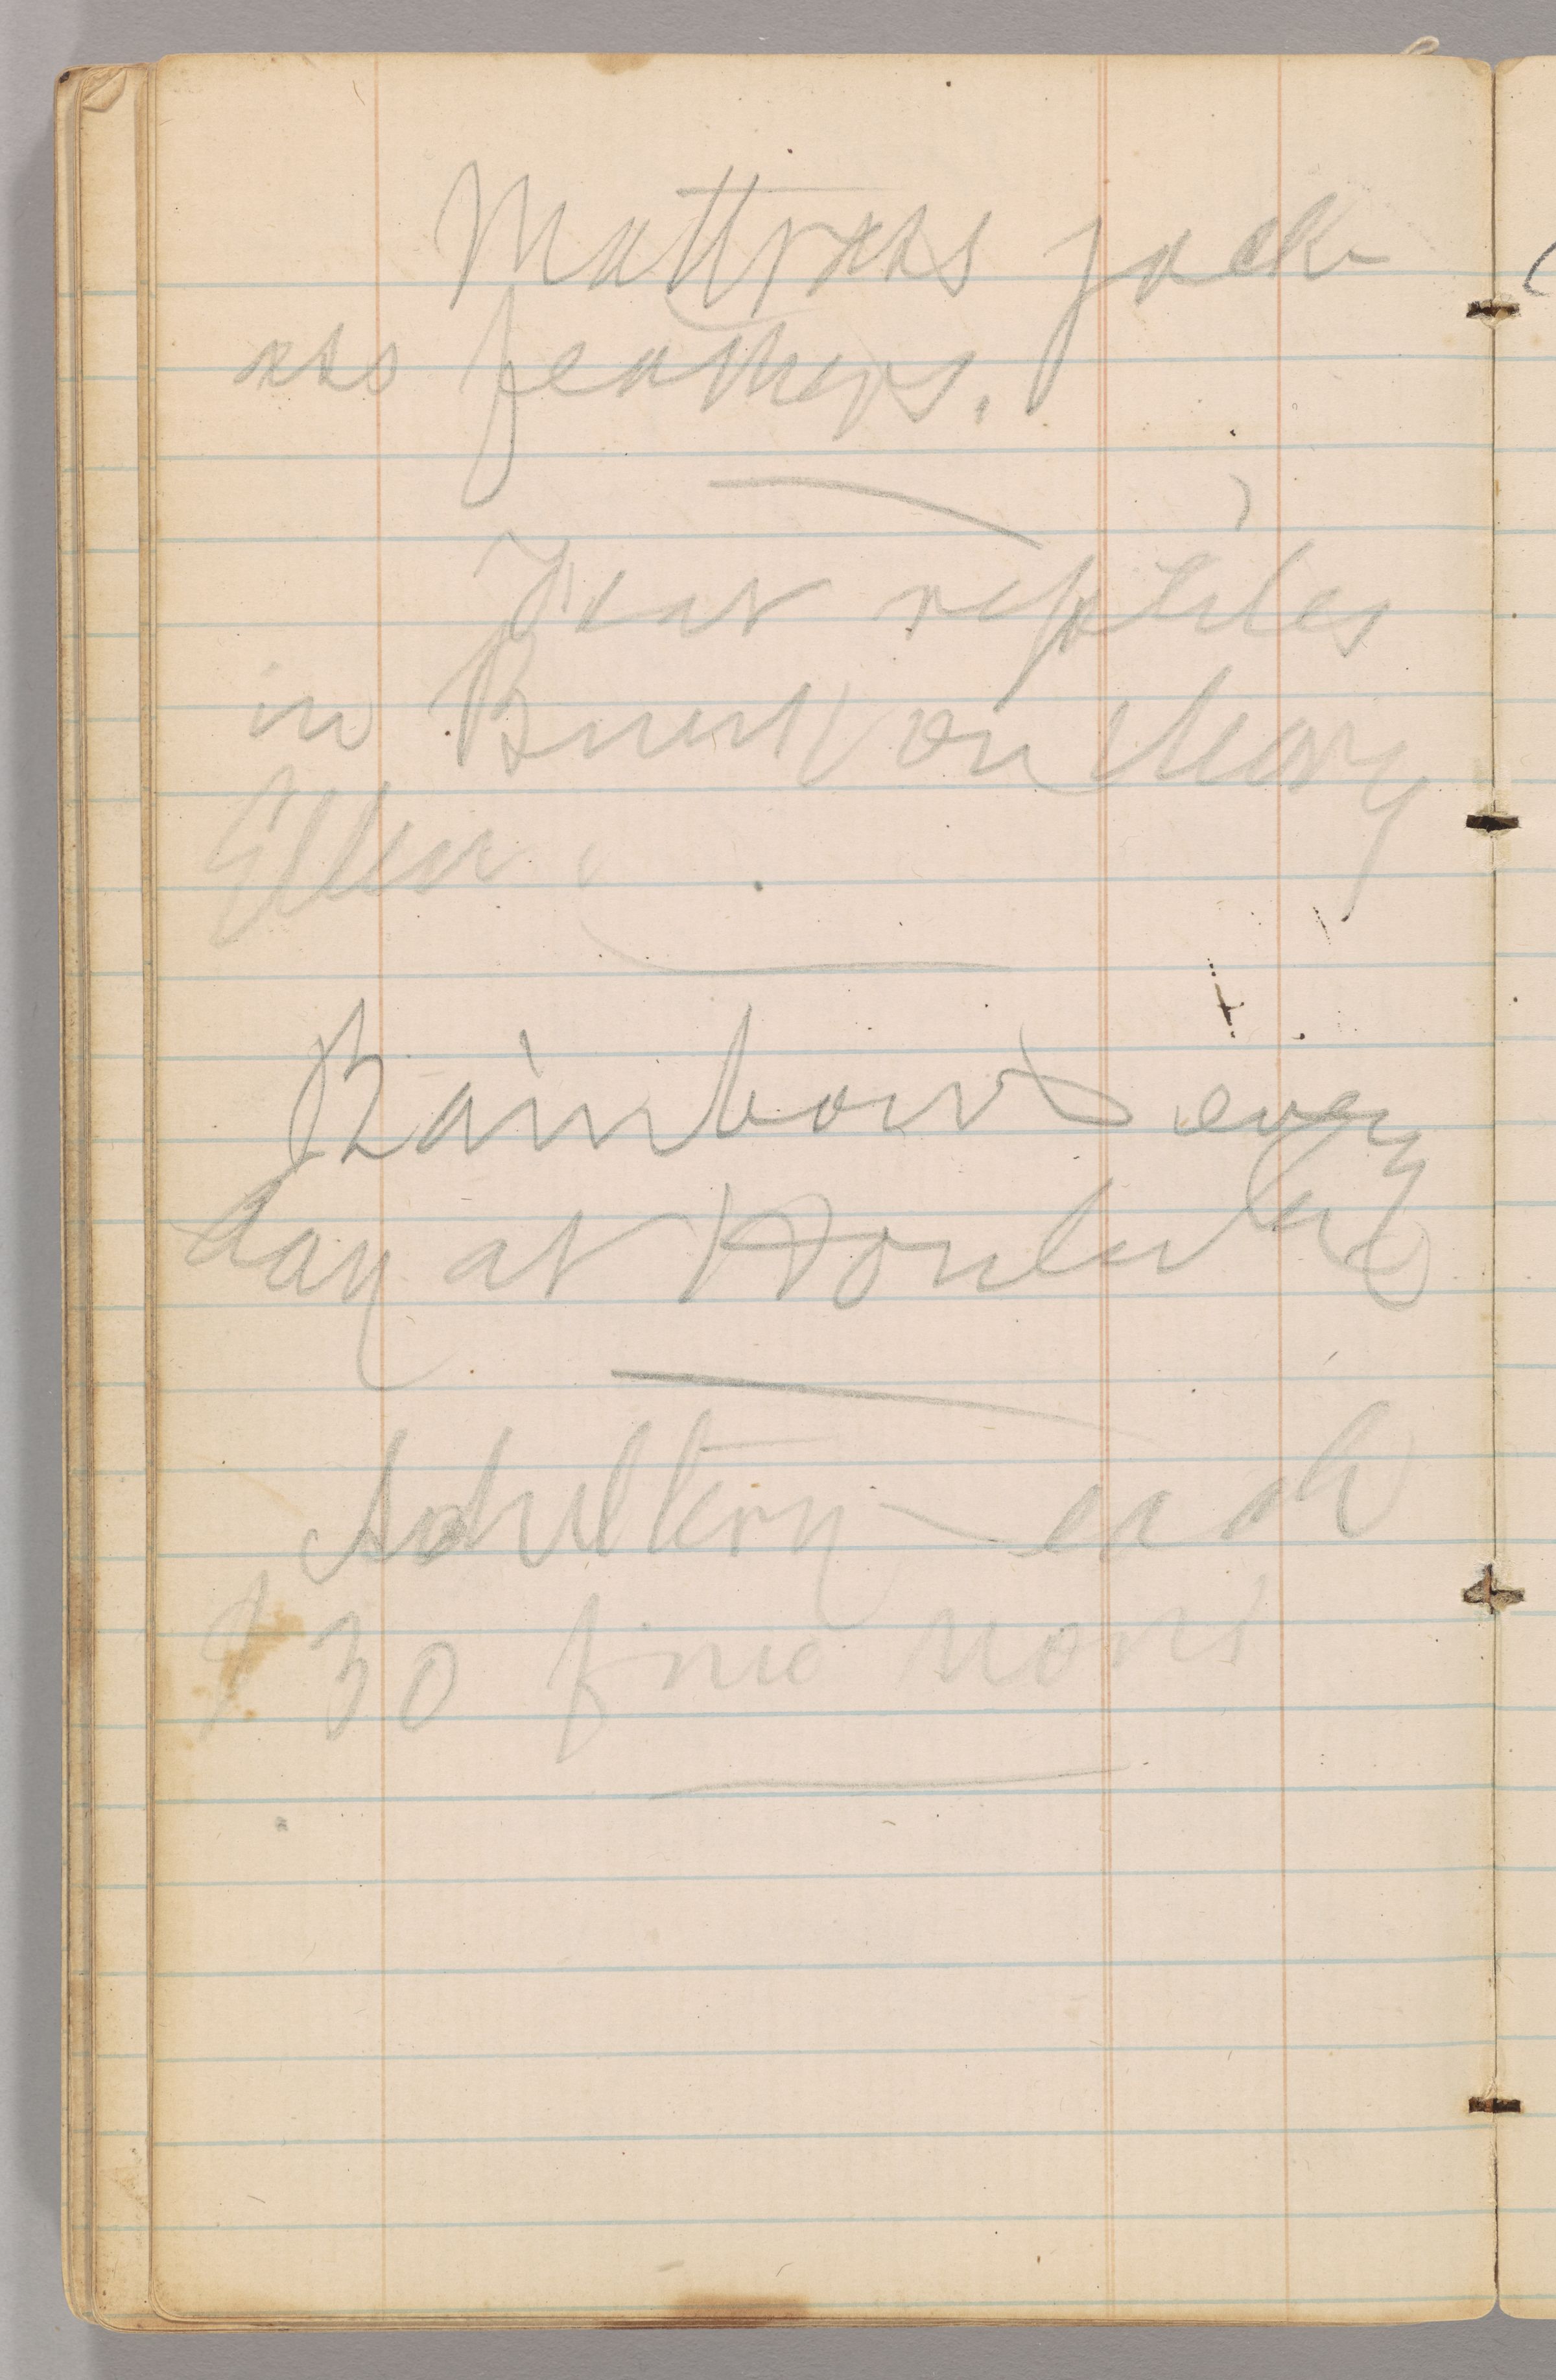 Mattrass jack
ass feathers.
reptiles
in Bunk on Mary
Ellen.
Rainbows every
day at Honlulu
Adultery — each
$30 fine